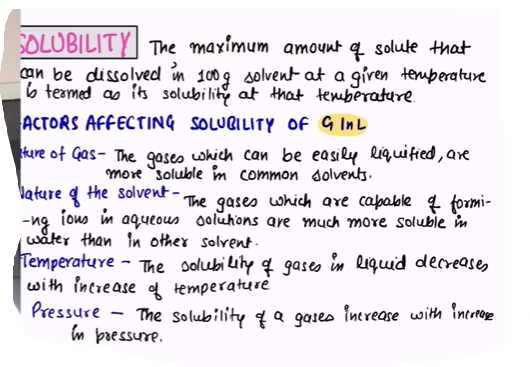 SOLUBILITY The maximum amount of solute that
can be dissolved in 100g solvent at a given temperature
is termed as its solubility at that temperature.
ACTORS AFFECTING SOLUBILITY OF G In L
ture of Gas- The gases which can be easily liquified, are
more soluble in common solvents.
Nature of the solvent - The gases which are capable of formi-
-ng ions in aqueous solutions are much more soluble in
water than in other solvent.
Temperature - The solubility of gases in liquid decreases
with increase of temperature
Pressure - The solubility of a gases increase with increase
in pressure.